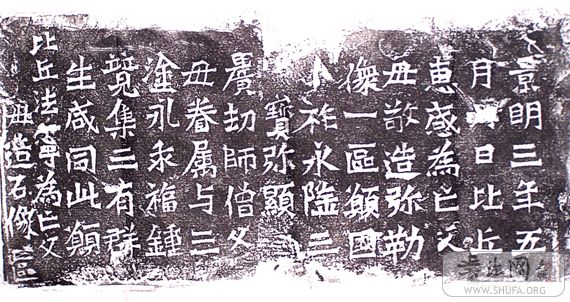 景明三年五
月日比丘
惠感為亡父
母敬造弥勒
像一區願國
祚永隆三
寶弥顯
曠劫師僧父
母眷属与三
塗永乖福鍾
竟集三有群
生咸同此願
比丘法寧為亡父
母造石像一區
书法网
WWW.SHUFA.ORG